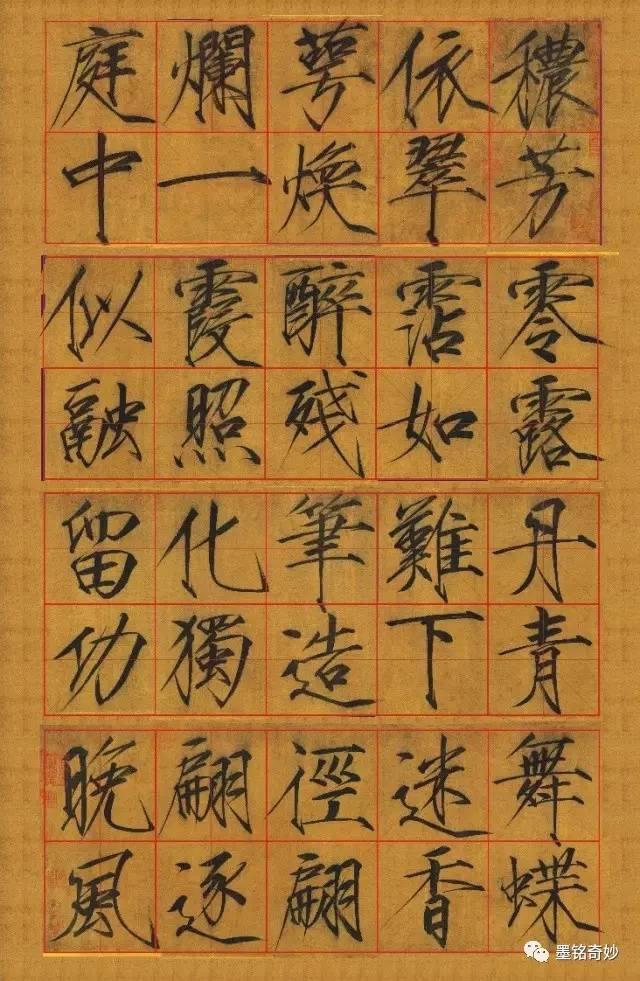 穠芳
依翠
萼煥
爛一
庭中
零露
霑如
醉殘
霞照
似融
丹青
難下
筆造
化獨
留功
舞蝶
迷香
徑翩
翩逐
晚風
墨铭奇妙